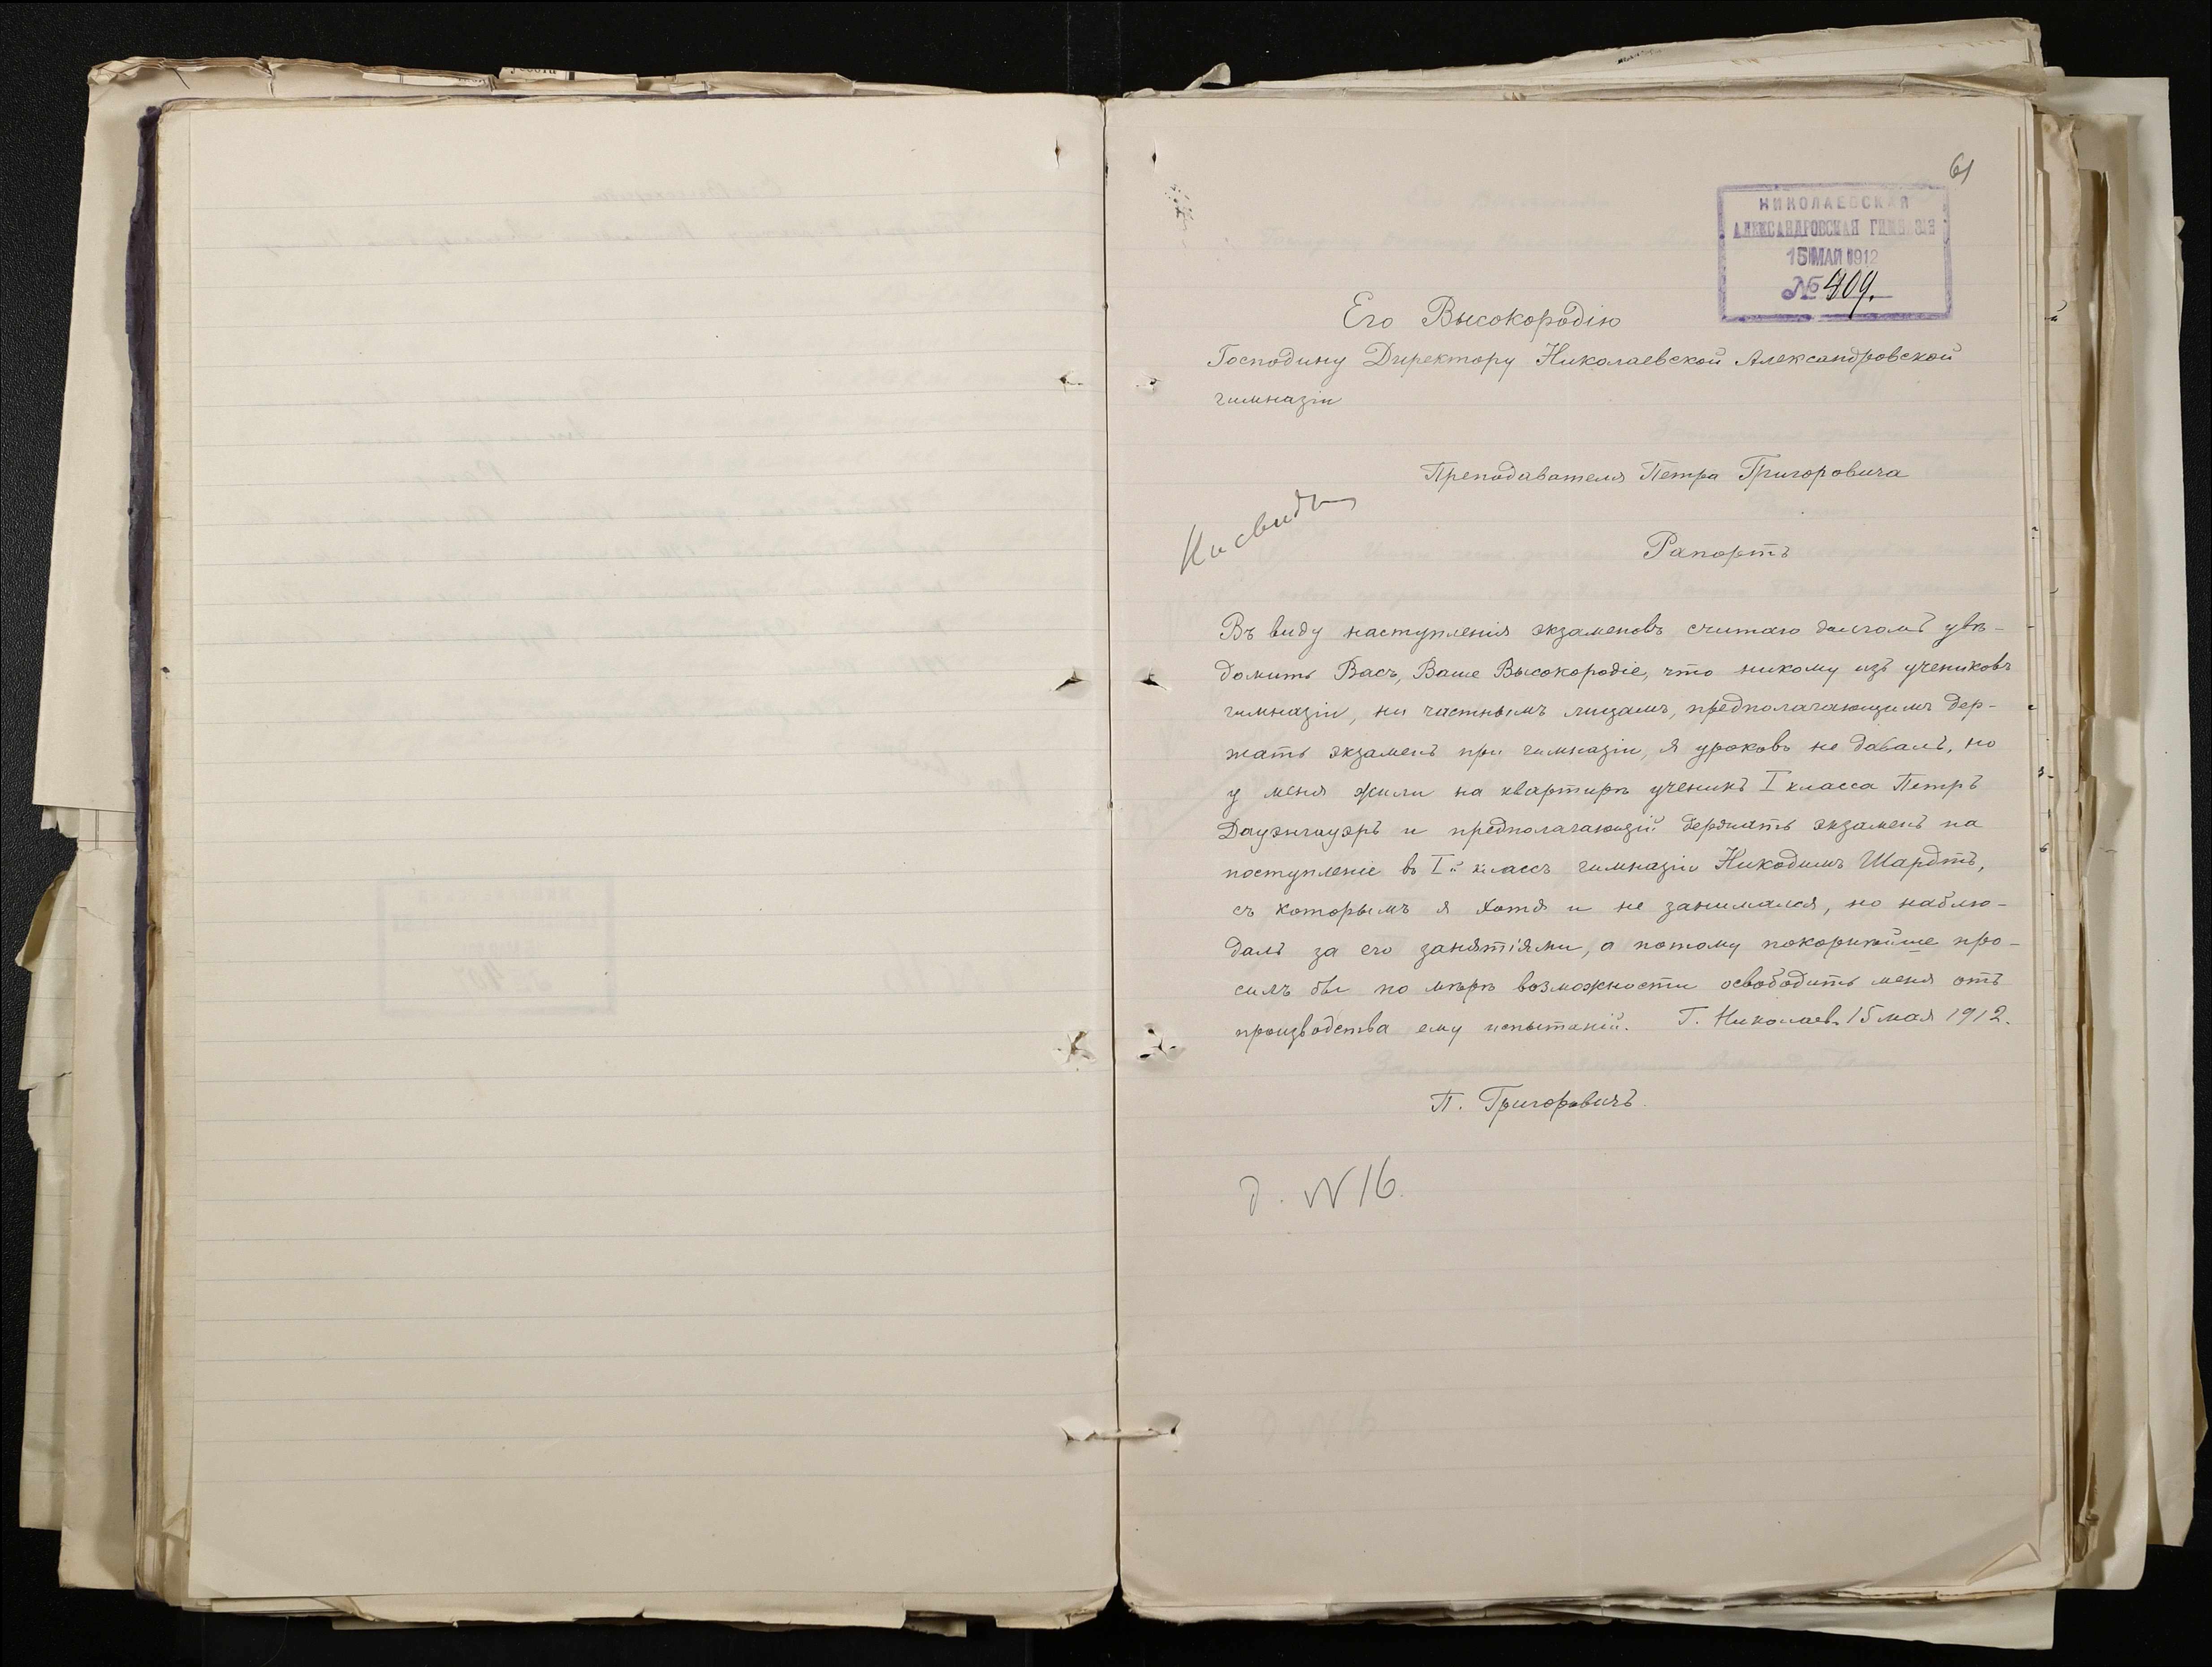 61
НИКОЛАЕВСКАЯ
АЛЕКСАНДРОВСКАЯ ГИМНАЗІЯ
15 МАЙ 1912
№ 409.
Его Высокородію
Господину Директору Николаевской Александровской
гимназіи
Преподавателя Петра Григоровича
Рапортъ
Въ виду наступленія экзаменовъ считаю долгомъ увѣ-
домить Васъ, Ваше Высокородіе, что никому изъ учениковъ
гимназіи, ни частнымъ лицамъ, предполагающимъ дер-
жать экзаменъ при гимназіи, я уроковъ не давалъ, но
у меня жили на квартирѣ ученикъ I класса Петръ
Дауэнгауэръ и предполагающій держать экзаменъ на
поступленіе въ I-й классъ гимназіи Никодимъ Шардтъ,
съ которымъ я хотя и не занимался, но наблю-
далъ за его занятіями, а потому покорнѣйше про-
силъ бы по мѣрѣ возможности освободить меня отъ
производства ему испытаній. Г. Николаевъ 15 мая 1912.
П. Григоровичъ.
д. N 16.